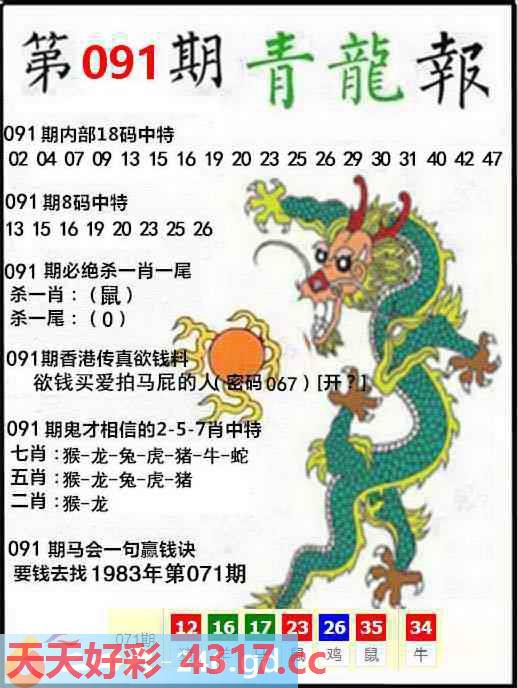 第091期 青龍報
091期内部18码中特
02 04 07 09 13 15 16 19 20 23 25 26 29 30 31 40 42 47
091期8码中特
13 15 16 19 20 23 25 26
091 期必绝杀一肖一尾
杀一肖：（鼠）
杀一尾：（0）
091期香港传真欲钱料
欲钱买爱拍马屁的人(密码067)[开？]
091期鬼才相信的2-5-7肖中特
七肖：猴-龙-兔-虎-猪-牛-蛇
五肖：猴-龙-兔-虎-猪
二肖：猴-龙
091 期马会一句赢钱诀
要钱去找1983年第071期
12 16 17 23 26 35 34
071期 鼠 鸡 鼠 牛
天天好彩 4317.cc